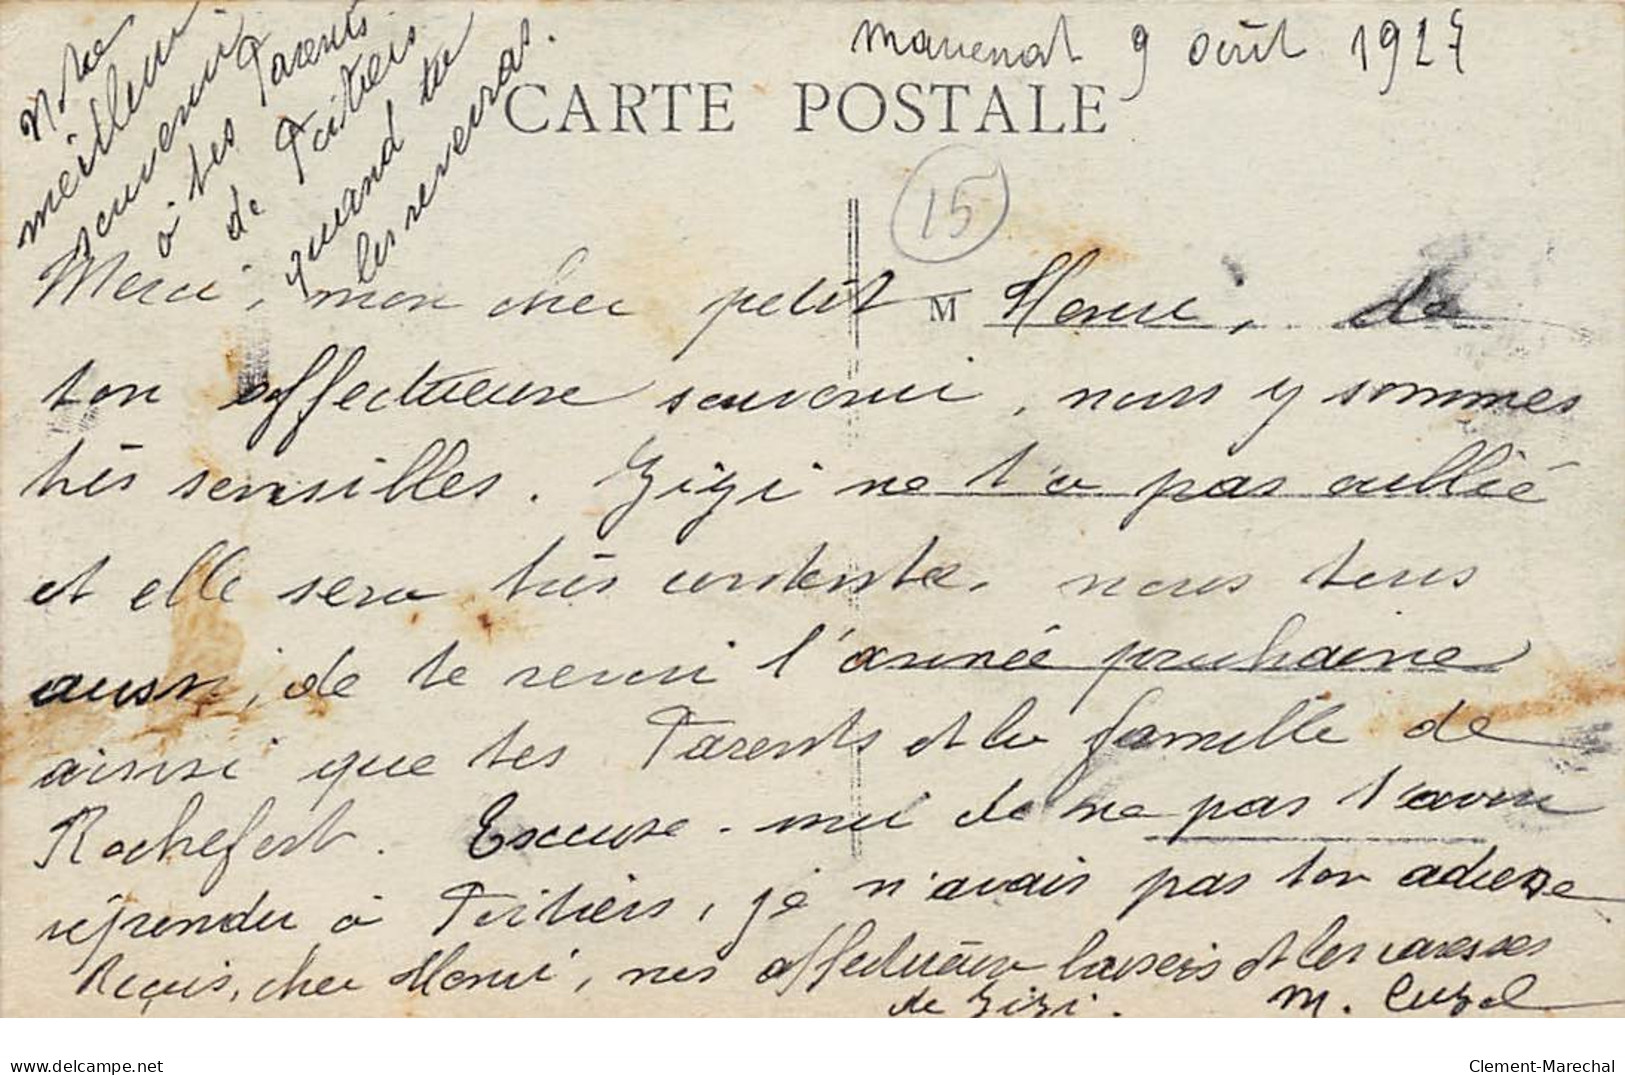 9 août 1927
CARTE POSTALE
15
Notre
meilleur
souvenir
à tes Parents
de Poitiers
quand tu
les reverras.
M
Merci, mon cher petit Henri, de
ton affectueuse souvenir, nous y sommes
très sensibles. Zizi ne t'a pas oublié
et elle sera très contente, nous tous
aussi, de te revoir l'année prochaine
ainsi que tes Parents et la famille de
Rochefort. Excuse-moi de ne pas t'avoir
répondu à Poitiers, je n'avais pas ton adresse
Reçois, cher Henri, nos affectueux baisers et les caresses
de Zizi. M.
www.delcampe.net
Clement-Marechal